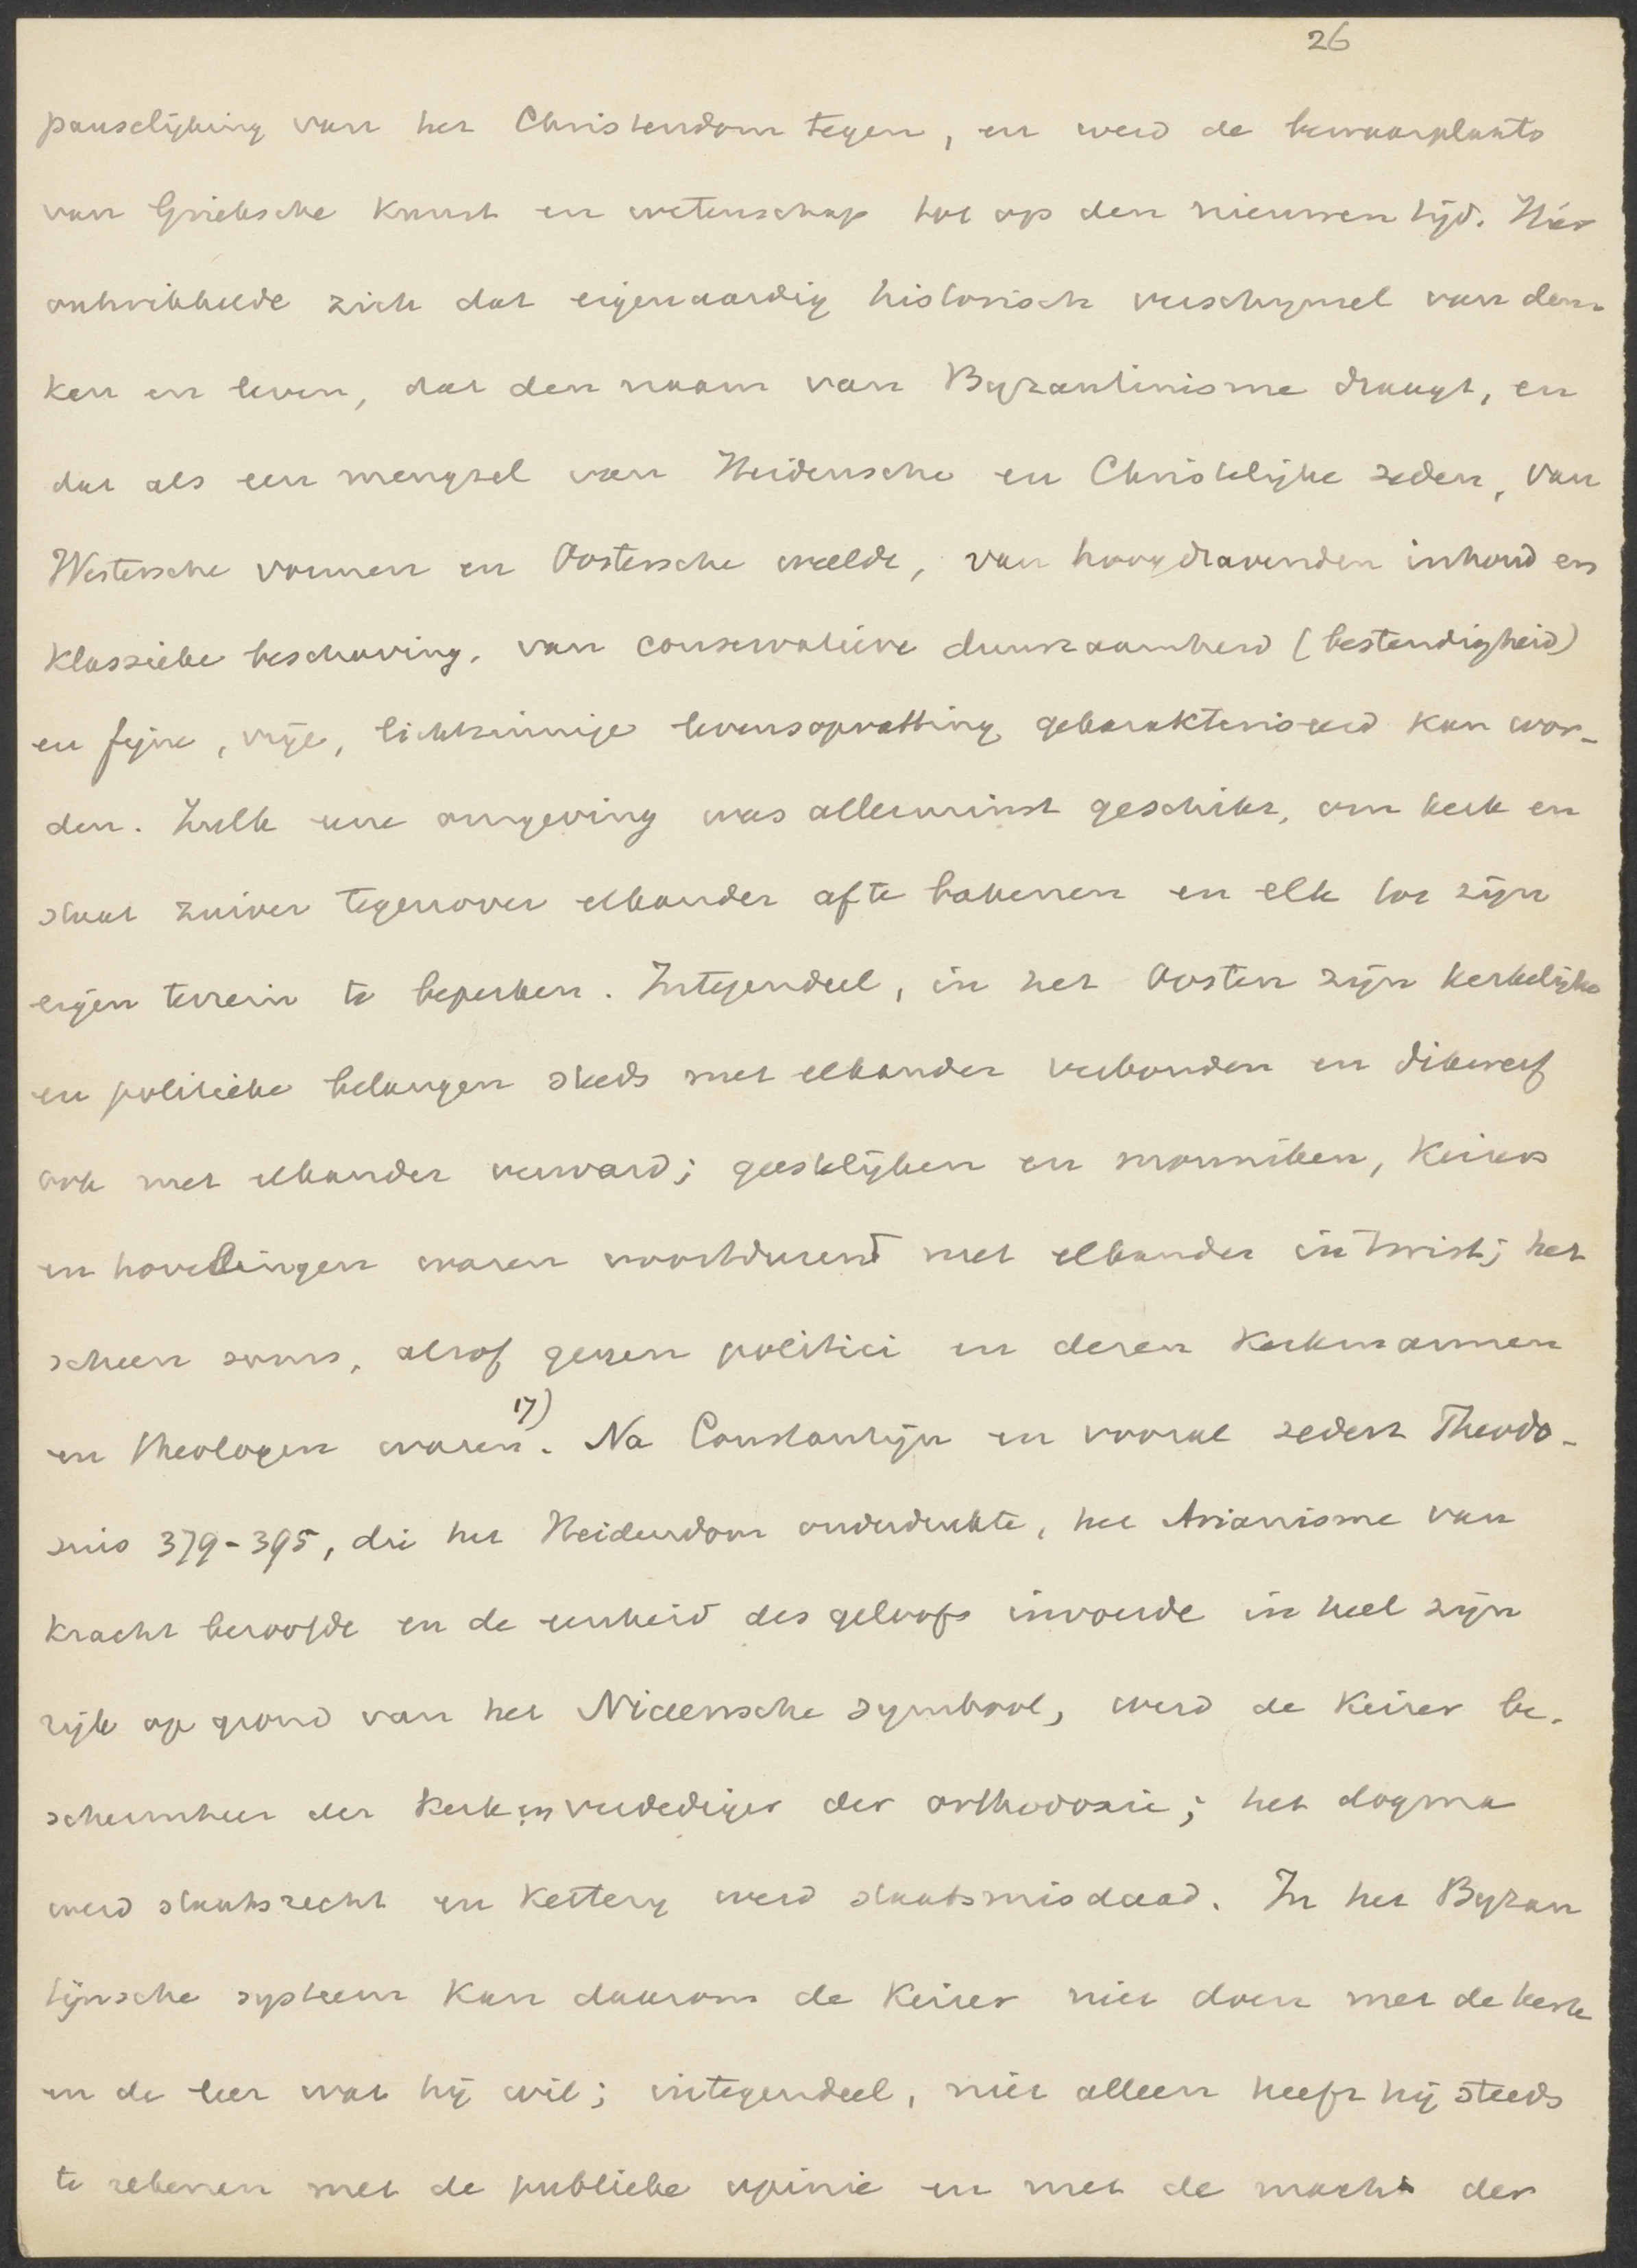 26
pauselijking van het Christendom tegen, en werd de bewaarplaats
van Grieksche Kunst en wetenschap tot op den nieuwen tijd. Hier
ontwikkelde zich dat eigenaardig historisch verschijnsel van den-
ken en leven, dat den naam van Byzantinisme draagt, en
dat als een mengsel van Heidensche en Christelijke zeden, van
Westersche vormen en Oostersche weelde, van hoogdravenden inhoud en
Klassieke beschaving, van conservatieve duurzaamheid (bestendigheid)
en fijne, vrije, lichtzinnige levensopvatting gekarakteriseerd kan wor-
den. Zulk eene omgeving was allerminst geschikt, om kerk en
staat zuiver tegenover elkander af te bakenen en elk tot zijn
eigen terrein te beperken. Integendeel, in het Oosten zijn kerkelijke
en politieke belangen steeds met elkander verbonden en dikwerf
ook met elkander verward; geestelijken en monniken, Keizers
en hovelingen waren voortdurend met elkander in twist; het
scheen soms, alsof genen politici en dezen Kerkmannen
en theologen waren 17). Na Constantijn en vooral sedert Theodo-
sius 379-395, die het Heidendom onderdrukte, het Arianisme van
kracht beroofde en de eenheid des geloofs invoerde in heel zijn
rijk op grond van het Niceensche symbool, werd de Keizer be-
schermheer der Kerk en verdediger der orthodoxie; het dogma
werd staatsrecht en Kettery werd staatsmisdaad. In het Byzan
tijnsche systeem kan daarom de Keizer niet doen met de kerk
en de leer wat hij wil; integendeel, niet alleen heeft hij steeds
te rekenen met de publieke opinie en met de macht der